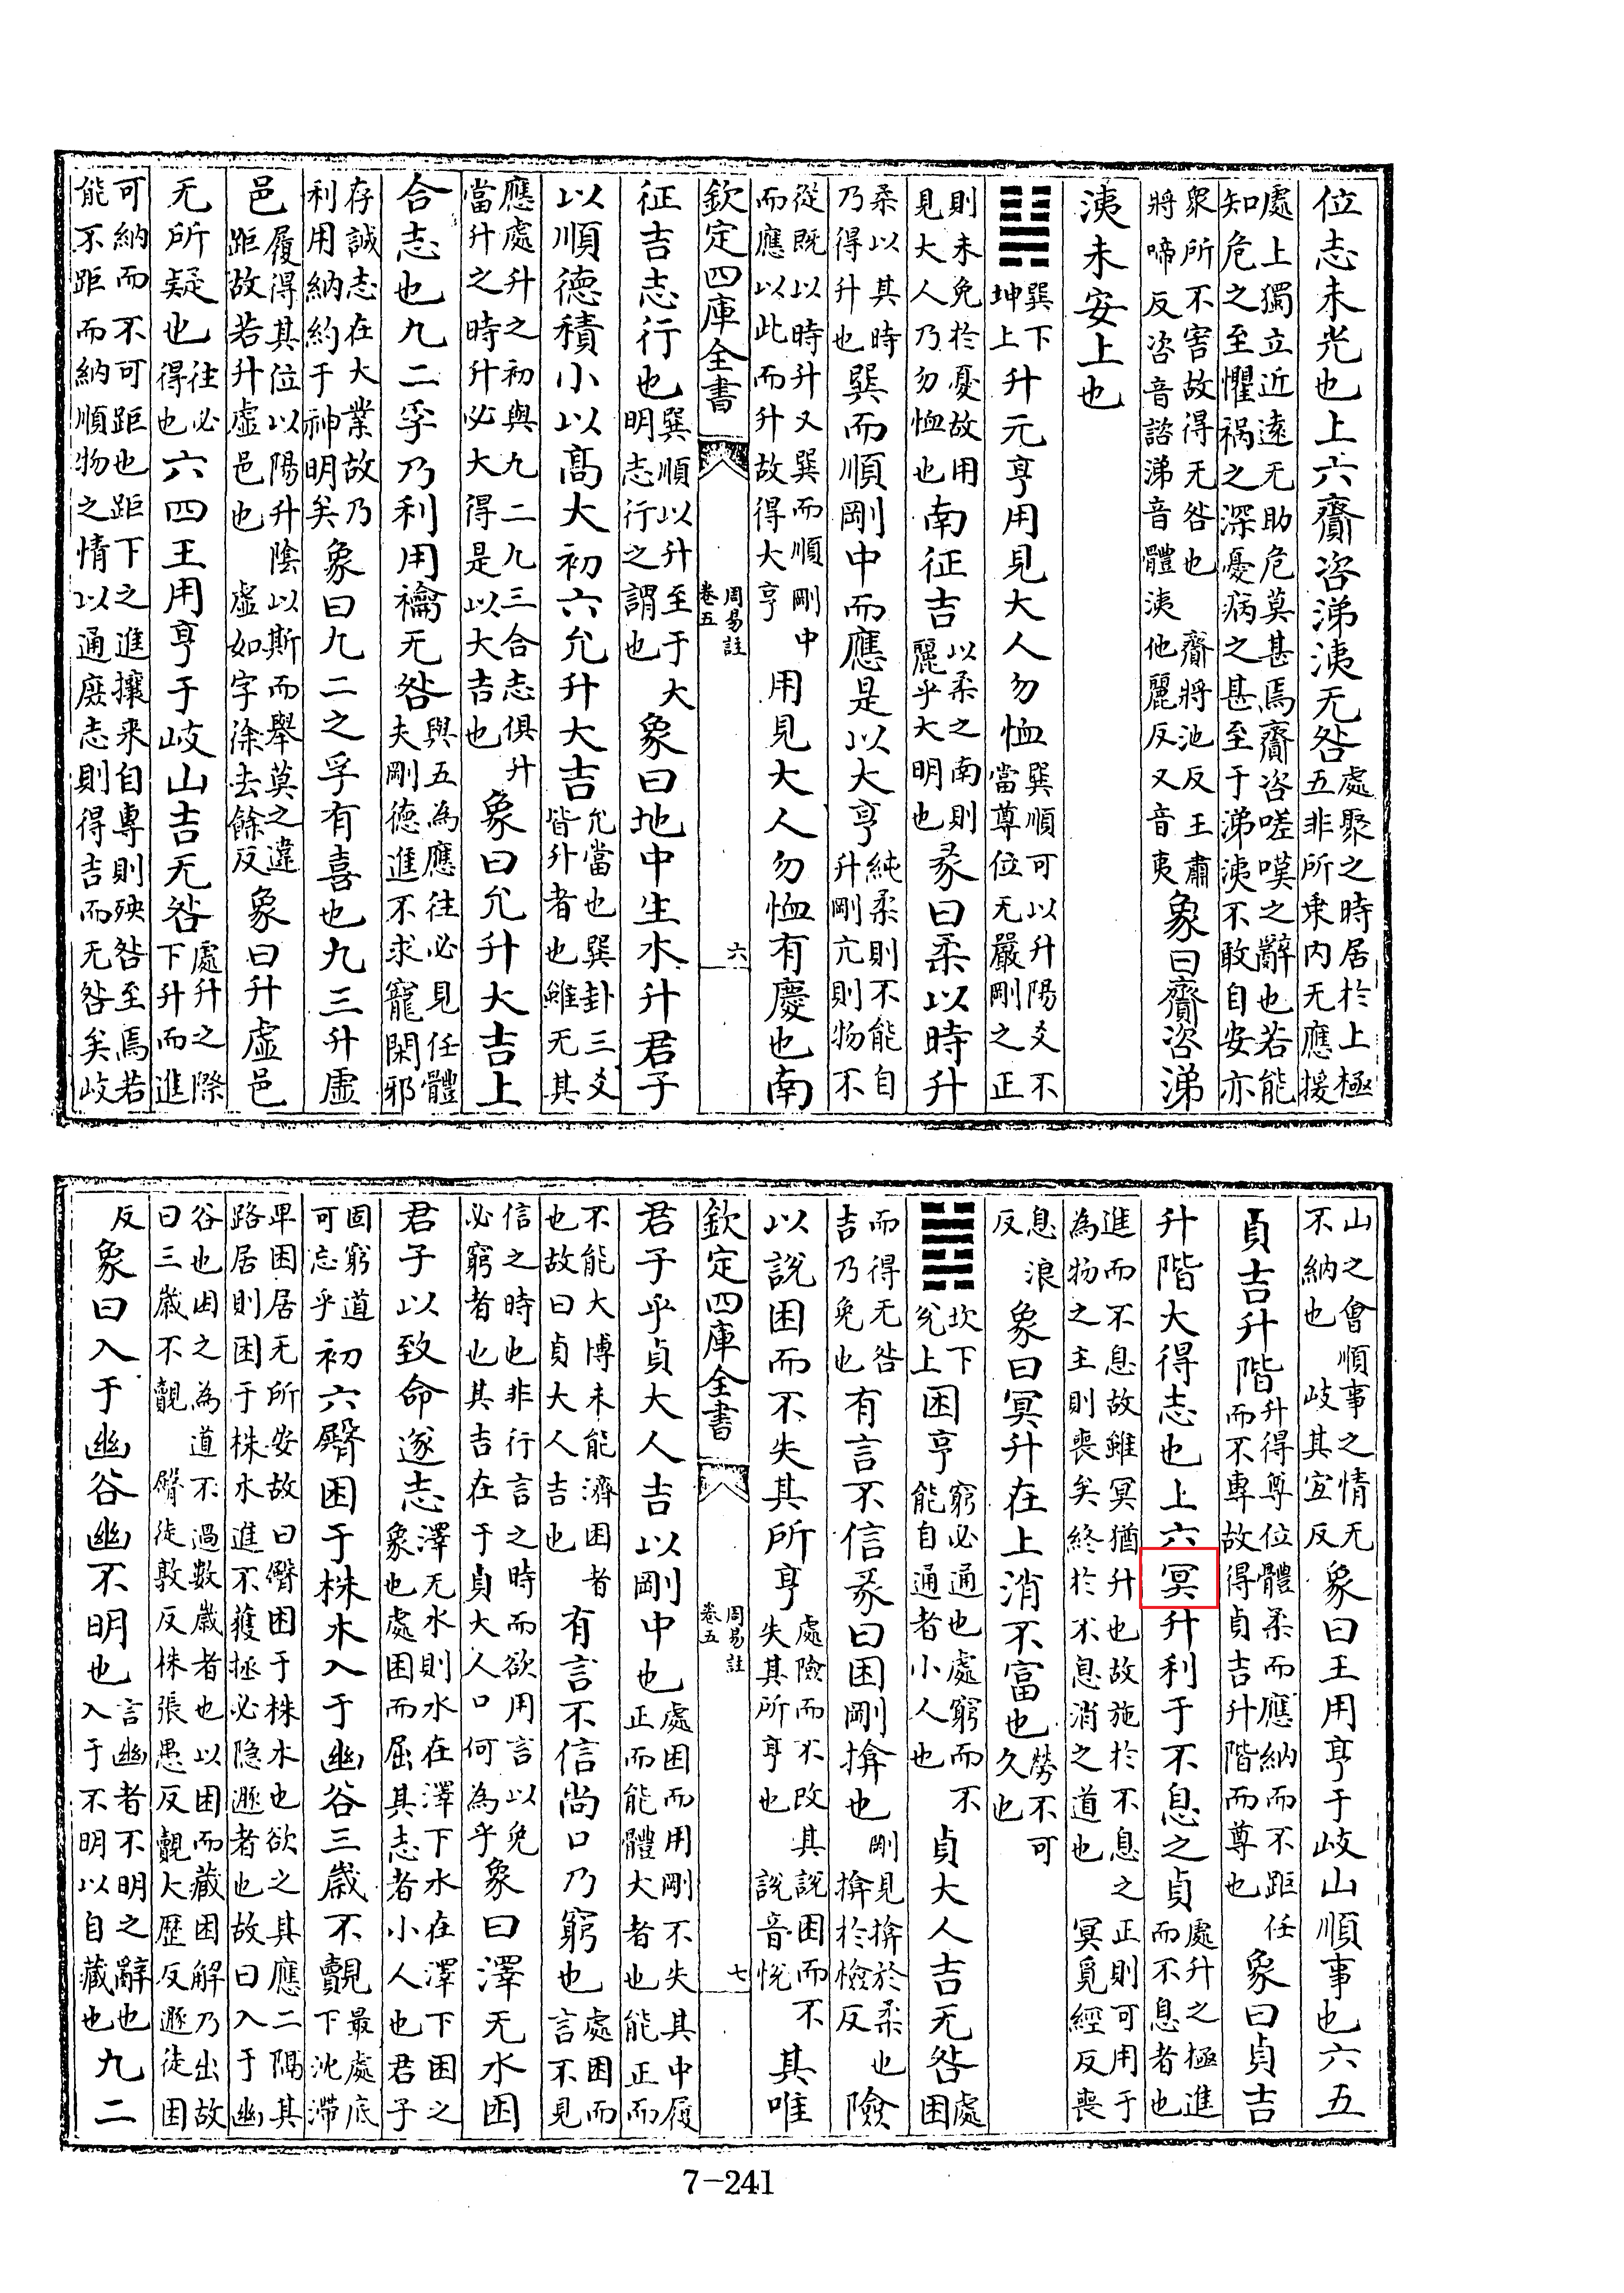 位志未光也上六齎咨涕洟无咎處聚之時居於上極
五非所乗内无應援
處上獨立近遠无助危莫甚焉齎咨嗟嘆之辭也若能
知危之至懼禍之深憂病之甚至于涕洟不敢自安亦
衆所不害故得无咎也 齎將池反王肅
將啼反咨音諮涕音體洟他麗反又音夷象曰齎咨涕
洟未安上也
巽下
坤上升元亨用見大人勿恤巽順可以升陽爻不
當尊位无嚴剛之正
則未免於憂故用
見大人乃勿恤也南征吉以柔之南則
麗乎大明也彖曰柔以時升
柔以其時
乃得升也巽而順剛中而應是以大亨純柔則不能自
升剛亢則物不
從既以時升又巽而順剛中
而應以此而升故得大亨用見大人勿恤有慶也南
欽定四庫全書
周易註
卷五
六
征吉志行也巽順以升至于大
明志行之謂也象曰地中生木升君子
以順德積小以髙大初六允升大吉允當也巽卦三爻
皆升者也雖无其
應處升之初與九二九三合志俱升
當升之時升必大得是以大吉也象曰允升大吉上
合志也九二孚乃利用禴无咎與五為應往必見任體
夫剛德進不求寵閑邪
存誠志在大業故乃
利用納約于神明矣象曰九二之孚有喜也九三升虛
邑履得其位以陽升陰以斯而舉莫之違
距故若升虛邑也 虛如字徐去餘反象曰升虛邑
无所疑也往必
得也六四王用亨于岐山吉无咎處升之際
下升而進
可納而不可距也距下之進攘来自專則殃咎至焉若
能不距而納順物之情以通庶志則得吉而无咎矣岐
山之會順事之情无
不納也 岐其宜反象曰王用亨于岐山順事也六五
貞吉升階升得尊位體柔而應納而不距任
而不專故得貞吉升階而尊也象曰貞吉
升階大得志也上六冥升利于不息之貞處升之極進
而不息者也
進而不息故雖冥猶升也故施於不息之正則可用于
為物之主則喪矣終於不息消之道也 冥覓經反喪
息浪
反象曰冥升在上消不富也勞不可
久也
坎下
兊上困亨窮必通也處窮而不
能自通者小人也貞大人吉无咎處困
而得无咎
吉乃免也有言不信彖曰困剛揜也剛見揜於柔也
揜於檢反險
以說困而不失其所亨處險而不改其說困而不
失其所亨也 說音悅其唯
欽定四庫全書
周易註
卷五
七
君子乎貞大人吉以剛中也處困而用剛不失其中履
正而能體大者也能正而
不能大博未能濟困者
也故曰貞大人吉也有言不信尚口乃窮也處困而
言不見
信之時也非行言之時而欲用言以免
必窮者也其吉在于貞大人口何為乎象曰澤无水困
君子以致命遂志澤无水則水在澤下水在澤下困之
象也處困而屈其志者小人也君子
固窮道
可忘乎初六臀困于株木入于幽谷三歲不覿最處底
下沈滯
卑困居无所安故曰臀困于株木也欲之其應二隔其
路居則困于株木進不獲拯必隠遯者也故曰入于幽
谷也困之為道不過數歲者也以困而藏困解乃出故
曰三歲不覿 臀徒敦反株張愚反覿大歷反遯徒困
反象曰入于幽谷幽不明也言幽者不明之辭也
入于不明以自藏也九二
7-241